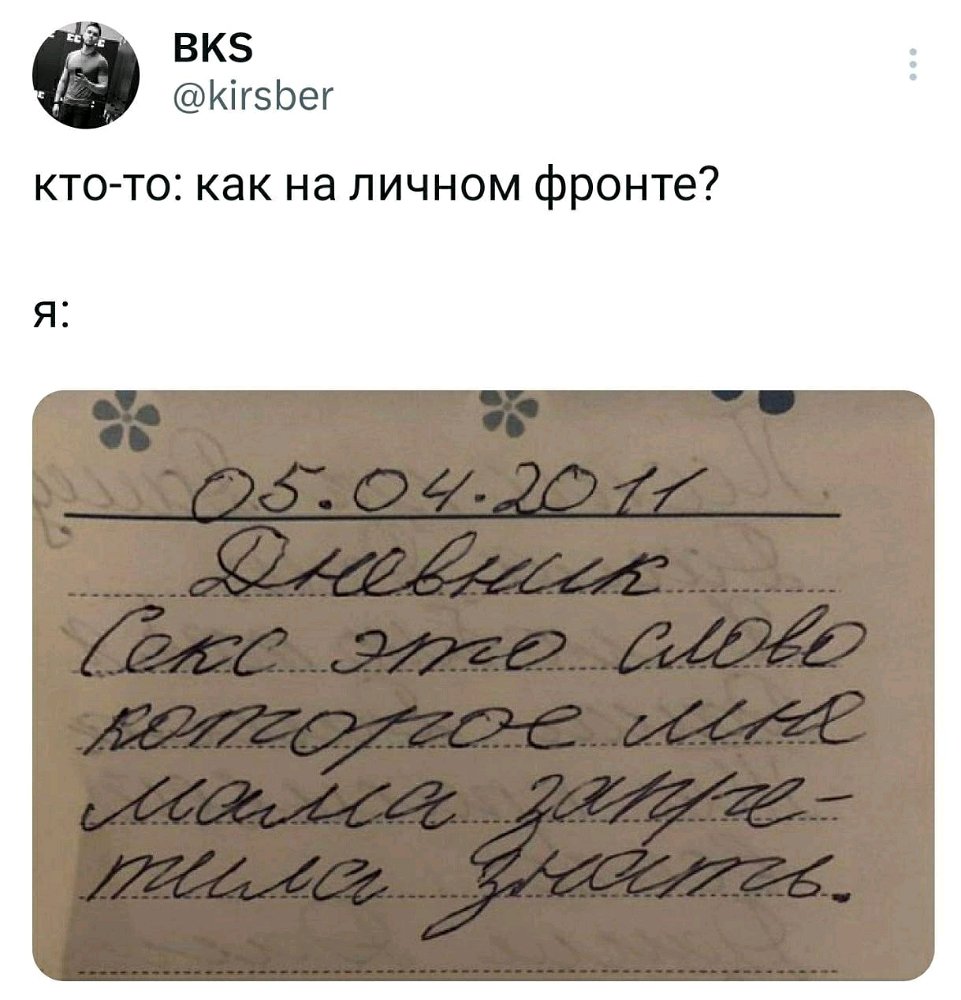 BKS
@kirsber
кто-то: как на личном фронте?
я:
05.04.2011
Дневник
Секс это слово
которое мне
мама запре-
тила знать.